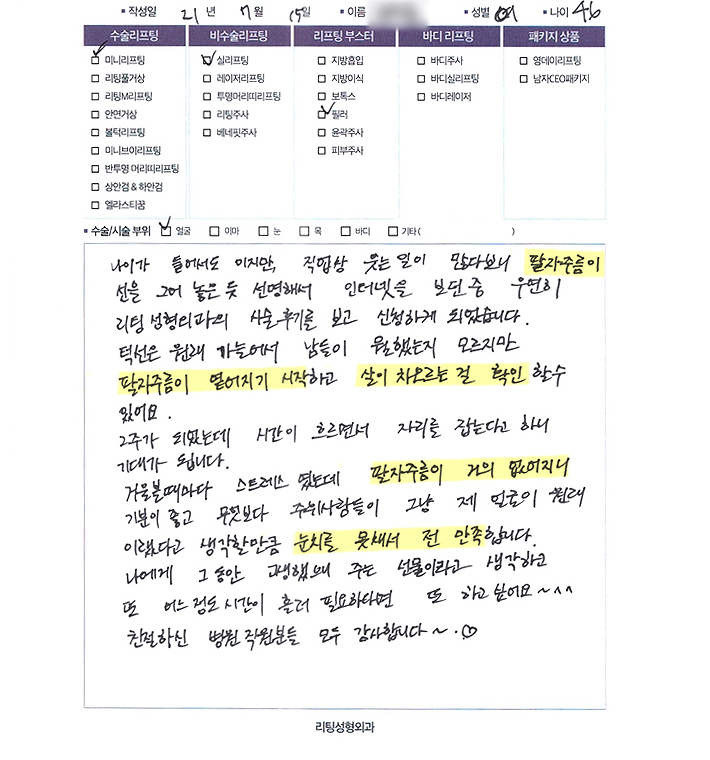 ▪ 작성일 21 년 7 월 15 일 ▪ 이름 ▪ 성별 여 ▪ 나이 46
수술리프팅 비수술리프팅 리프팅 부스터 바디 리프팅 패키지 상품
☑ 미니리프팅 ☑ 실리프팅 □ 지방흡입 □ 바디주사 □ 영데이리프팅
□ 리팅풀거상 □ 레이저리프팅 □ 지방이식 □ 바디실리프팅 □ 남자CEO패키지
□ 리팅M리프팅 □ 투명머리띠리프팅 □ 보톡스 □ 바디레이저
□ 안면거상 □ 리팅주사 ☑ 필러
□ 볼턱리프팅 □ 베네핏주사 □ 윤곽주사
□ 미니브이리프팅 □ 피부주사
□ 반투명 머리띠리프팅
□ 상안검 & 하안검
□ 엘라스티꿈
▪ 수술/시술 부위 ☑ 얼굴 □ 이마 □ 눈 □ 목 □ 바디 □ 기타 ( )
나이가 들어서도 이지만, 직업상 웃는 일이 많다보니 팔자주름이
선을 그어 놓은 듯 선명해서 인터넷을 보던 중 우연히
리팅 성형외과의 시술후기를 보고 신청하게 되었습니다.
턱선은 원래 가늘어서 남들이 원했는지 모르지만
팔자주름이 옅어지기 시작하고 살이 차오르는 걸 확인 할 수
있어요.
2주가 되었는데 시간이 흐르면서 자리를 잡는다고 하니
기대가 됩니다.
거울볼때마다 스트레스 였는데 팔자주름이 거의 없어지니
기분이 좋고 무엇보다 주위사람들이 그냥 제 얼굴이 원래
이랬다고 생각할만큼 눈치를 못채서 전 만족합니다.
나에게 그 동안 고생했으니 주는 선물이라고 생각하고
또 어느 정도 시간이 흘러 필요하다면 또 하고 싶어요~^^
친절하신 병원 직원분들 모두 감사합니다~.♡
리팅성형외과